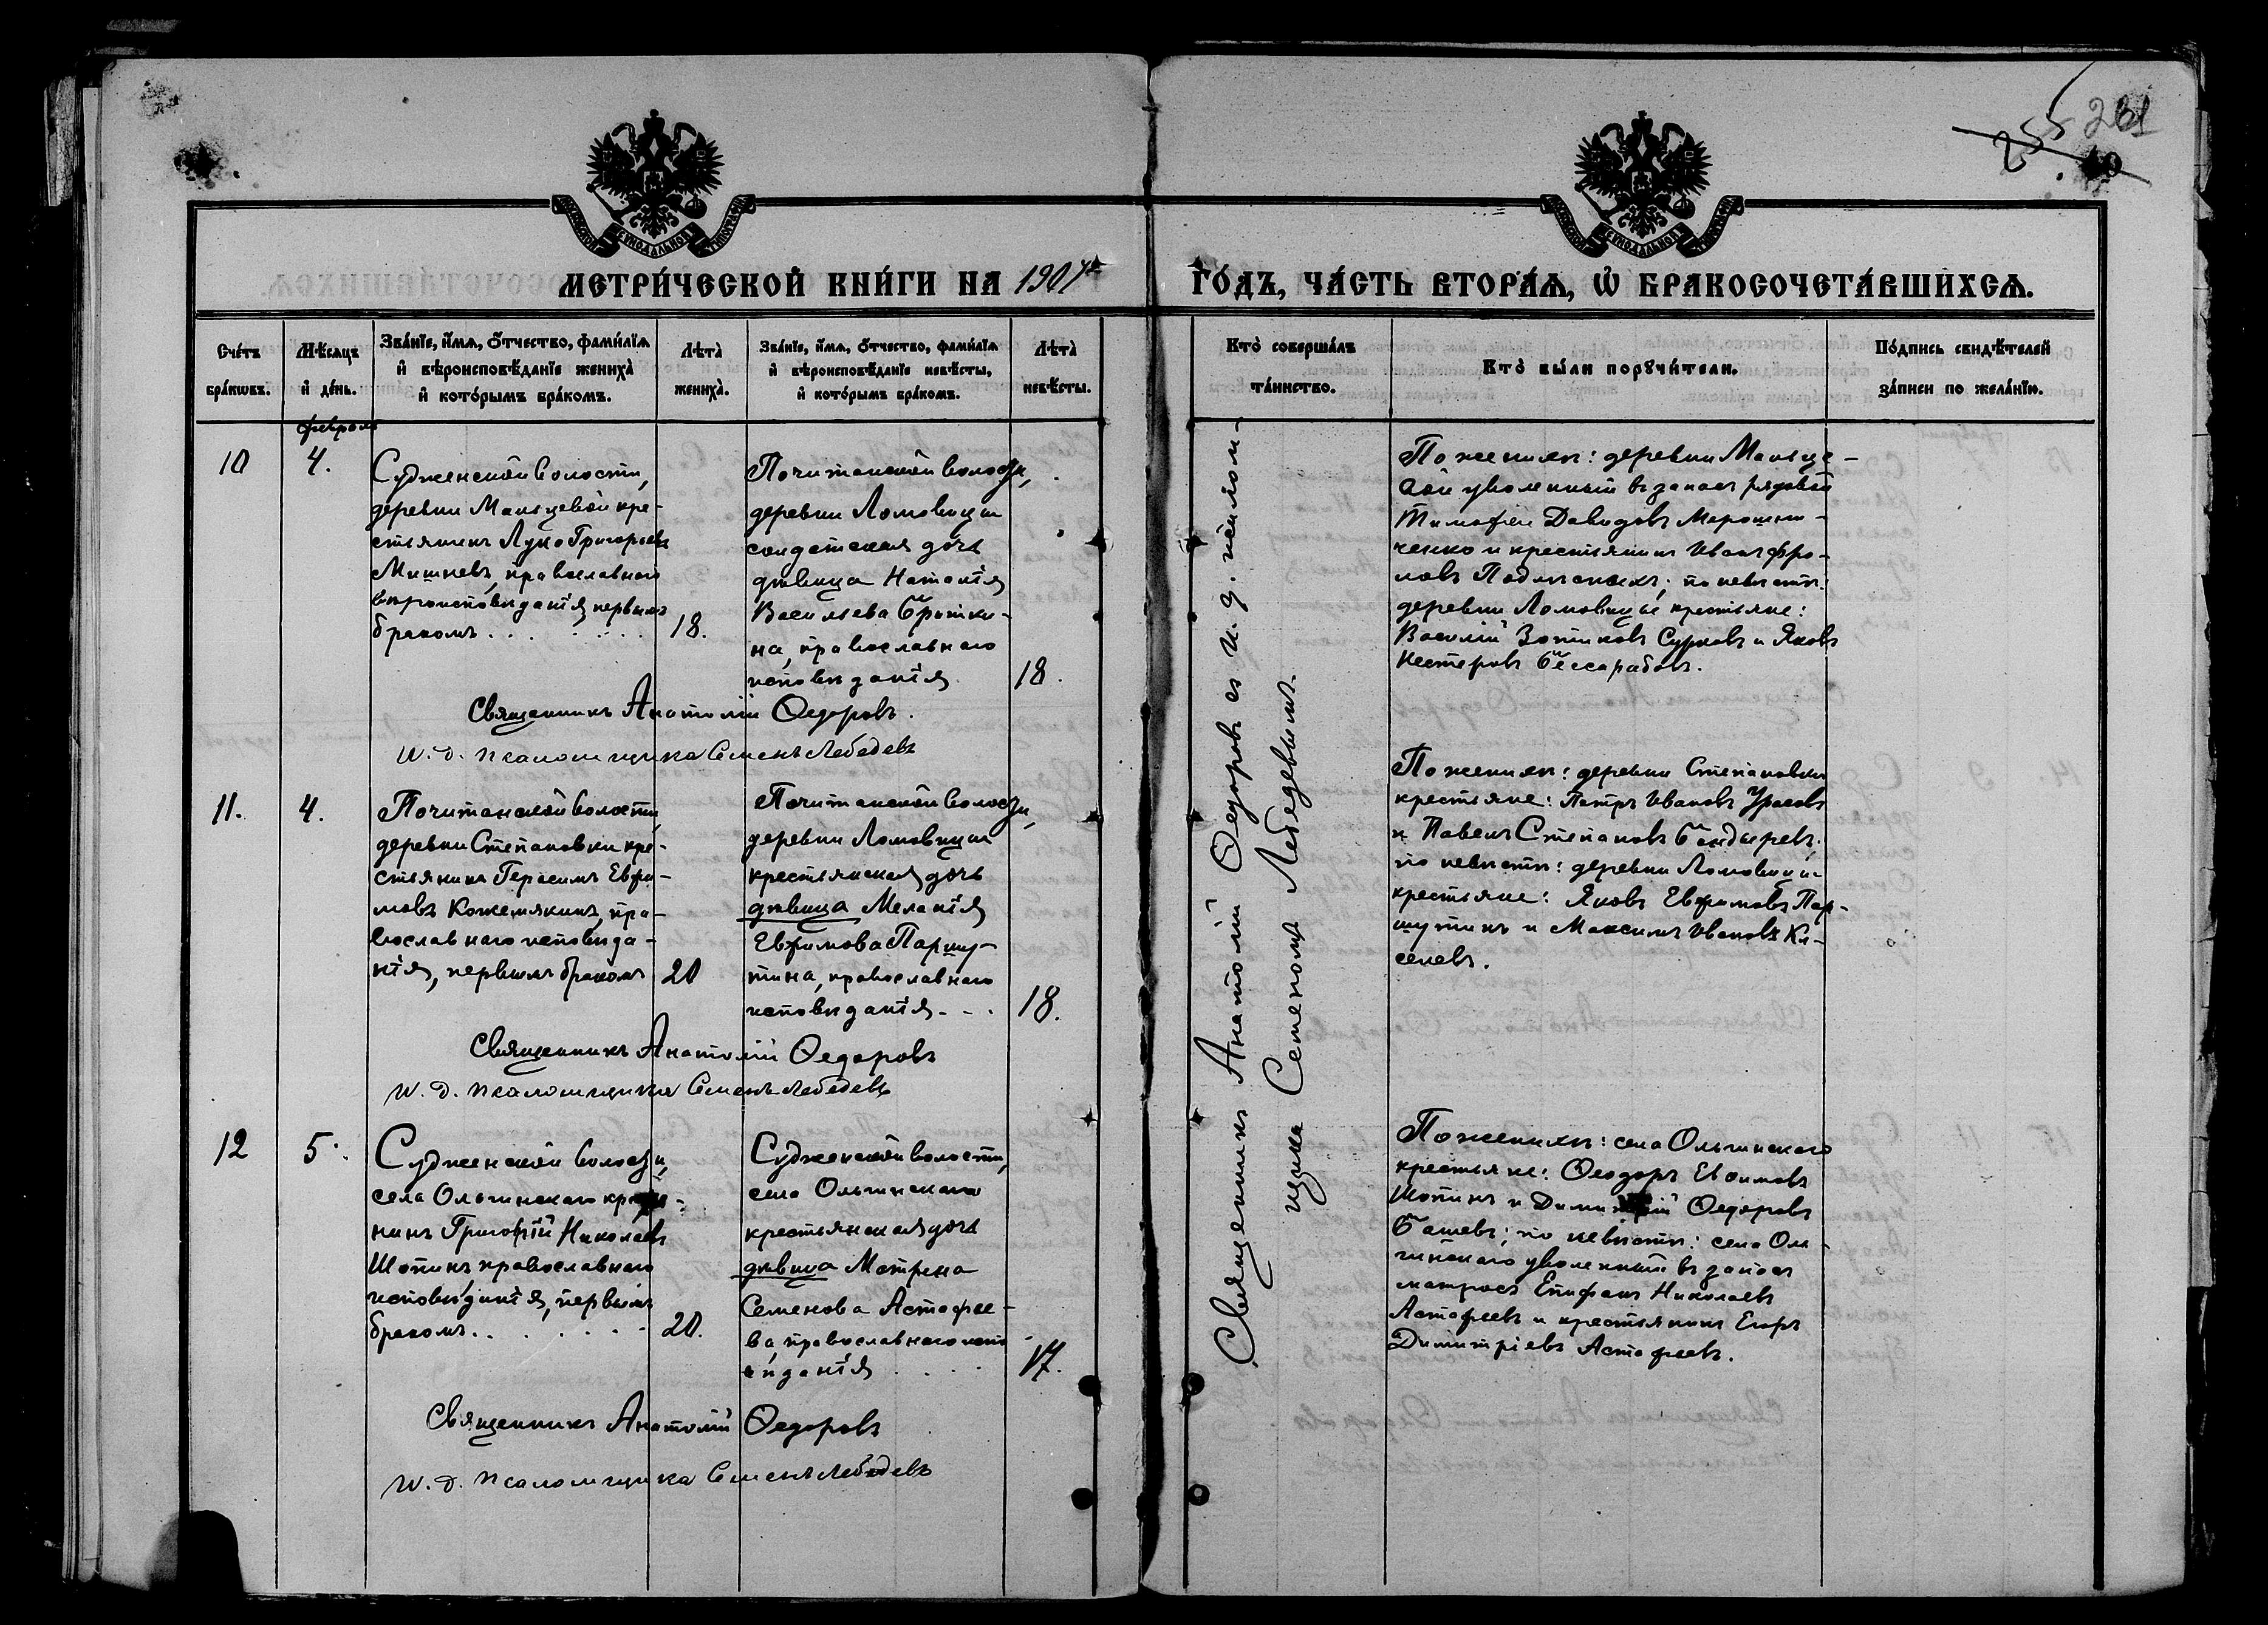 255 261
10
МЕТРИ́ЧЕСКОЙ КНИ́ГИ НА 1901й
ГО́ДЪ, ЧА́СТЬ ВТОРА́Ѧ, Ѽ БРАКОСОЧЕТА́ВШИХСѦ.
Сче́тъ бра́кѡвъ.
Мѣ́сѧцъ и҆ де́нь.
Зва́нїе, и҆́мѧ, ѻ҆́тчество, фами́лїѧ
и҆ вѣроисповѣ́данїе жениха̀
и҆ кото́рымъ бра́комъ.
Лѣта̀ жениха̀.
Зва́нїе, и҆́мѧ, ѻ҆́тчество, фами́лїѧ
и҆ вѣроисповѣ́данїе невѣ́сты,
и҆ кото́рымъ бра́комъ.
Лѣта̀ невѣ́сты.
Кто̀ соверша́лъ та́инство.
Кто̀ бы́ли порꙋчи́тели.
По́дпись свидѣ́телей
за́писи по жела́нїю.
февраль
10
4.
Судженской волости,
деревни Мальцевой кре-
стьянинъ Лука Григорьевъ
Мишневъ, православнаго
вѣроисповѣданія, первымъ
бракомъ. . . . . . .
18.
Почитанской волости,
деревни Ломовицы
солдатская дочь
дѣвица Наталія
Васильева Братки-
на, православнаго
исповѣданія.
18.
Священникъ Анатолій Ѳедоровъ.
И. д. псаломщика Семенъ Лебедевъ
По женихѣ: деревни Мальце-
вой уволенный въ запасъ рядовой
Тимофей Давидовъ Мирошни-
ченко и крестьянинъ Иванъ Фро-
ловъ Подлесныхъ; по невѣстѣ:
деревни Ломовицы крестьяне:
Василій Зотиковъ Сурковъ и Яковъ
Нестеровъ Бессарабовъ.
11.
4.
Почитанской волости,
деревни Степановки кре-
стьянинъ Герасимъ Евфи-
мовъ Кожемякинъ, пра-
вославнаго исповѣда-
нія, первымъ бракомъ
20
Почитанской волости,
деревни Ломовицы
крестьянская дочь
дѣвица Меланія
Евфимова Паршу-
тина, православнаго
исповѣданія. . .
18.
Священникъ Анатолій Ѳедоровъ
И. д. псаломщика Семенъ Лебедевъ
По женихѣ: деревни Степановки
крестьяне: Петръ Ивановъ Урасовъ
и Павелъ Степановъ Бандыревъ;
по невѣстѣ: деревни Ломовицы
крестьяне: Яковъ Евфимовъ Пар-
шутинъ и Максимъ Ивановъ Ки-
селевъ.
12
5.
Судженской волости,
села Ольгинскаго
нинъ Григорій Николаевъ
Шопинъ, православнаго
исповѣданія, первымъ
бракомъ. . . . . . .
20.
Судженской волости,
села Ольгинскаго
крестьянская дочь
дѣвица Матрена
Семенова Астафье-
ва, православнаго испо
вѣданія . . . .
17.
Священникъ Анатолій Ѳедоровъ
И. д. псаломщика Семенъ Лебедевъ
По женихѣ: села Ольгинскаго
крестьяне: Ѳеодоръ Евѳимовъ
Шопинъ и Димитрій Ѳедоровъ
по невѣстѣ: села Оль-
гинскаго уволенный въ запасъ
матросъ Епифанъ Николаевъ
Астафьевъ и крестьянинъ Егоръ
Димитріевъ Астафьевъ.
Священникъ Анатолій Ѳедоровъ съ и. д. псалом-
щика Семеномъ Лебедевымъ.